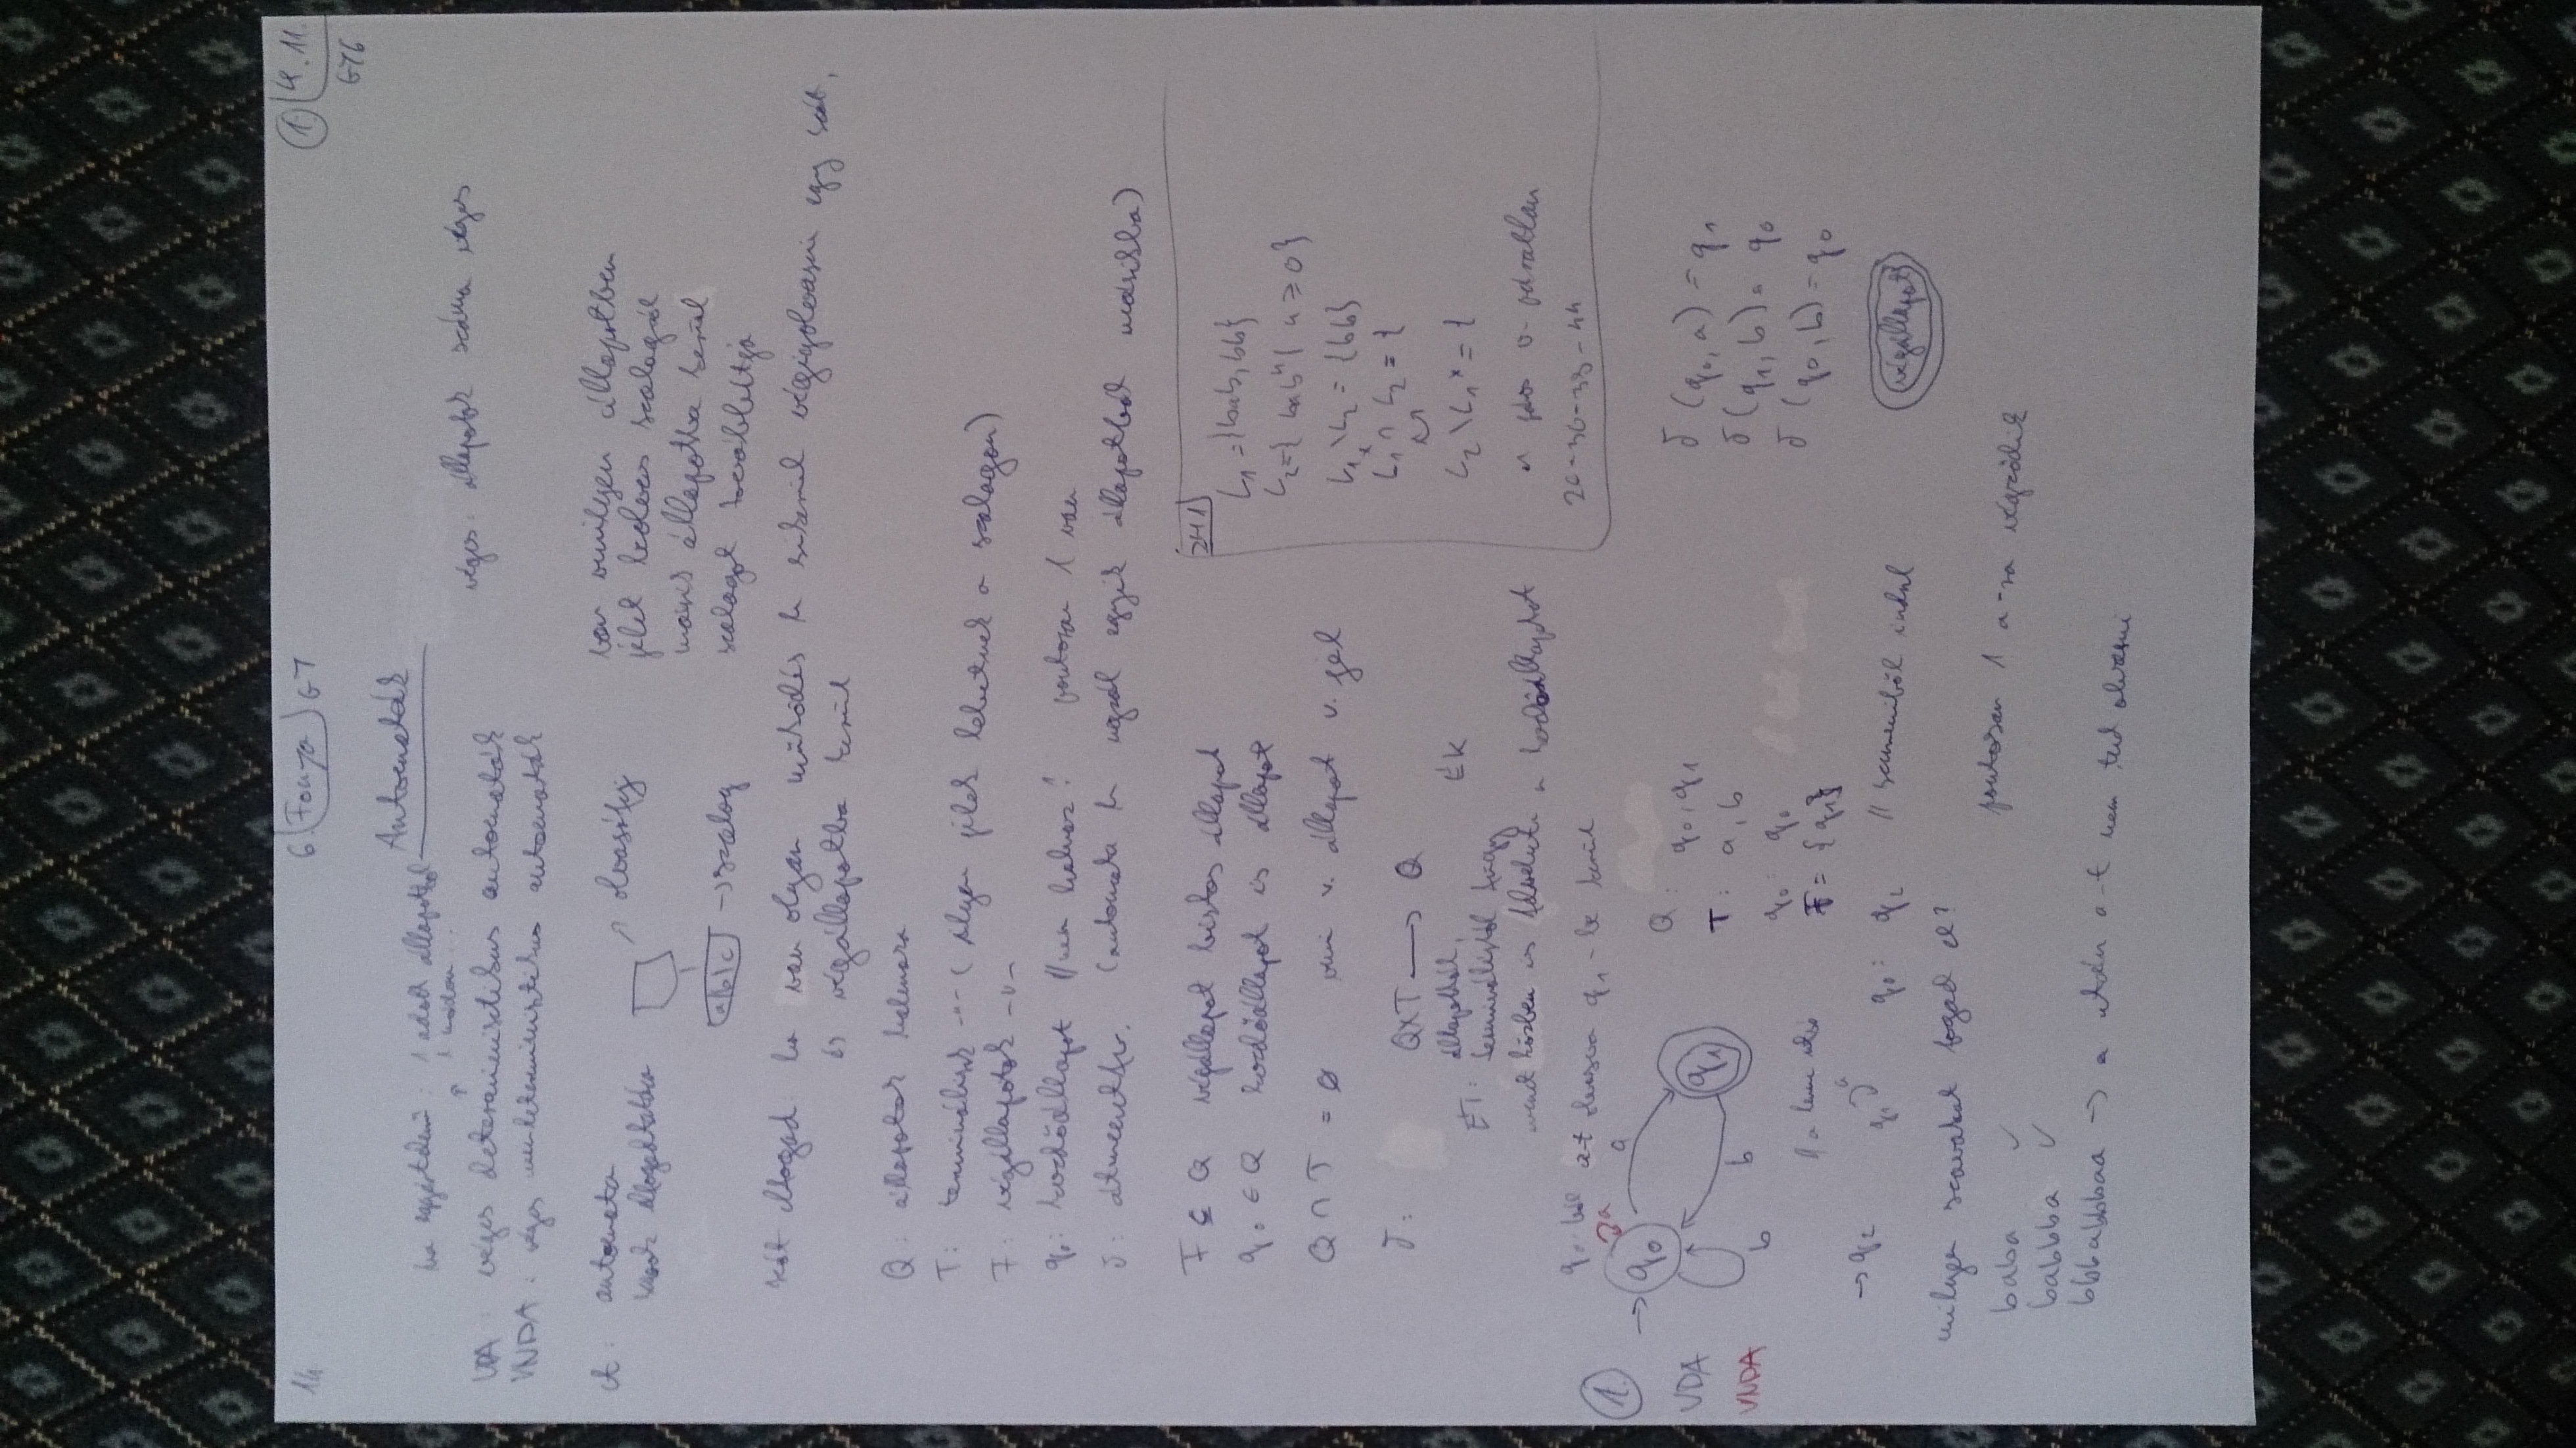 14
6. Fonya GY
1. 4. 11.
GY6
Automaták
ha egyértelmű: 1 adott állapotból
1 módon...
véges: állapotok száma véges
VDA: véges determinisztikus automaták
VNDA: véges nemdeterminisztikus automaták
A: automata
szavak elfogadtatására
olvasófej
a|b|c → szalag
van vmilyen állapotben
jelet beolvas szalagról
másik állapotba kerül
szalagot továbbléptja
szót elfogad: ha van olyan működés h sikerül végigolvasni egy szót,
és végállapotba kerül
Q: állapotok halmaza
T: terminálisok -"- (ilyen jelek lehetnek a szalagon)
F: végállapotok -"-
q0: kezdőállapot // nem halmaz! pontosan 1 van
δ: átmenetfv. (automata h ugrál egyik állapotból másikba)
F ⊆ Q végállapot biztos állapot
q0 ∈ Q kezdőállapot is állapot
Q ∩ T = ∅ vmi v. állapot v. jel
δ: Q×T → Q
ÉT: állapottól,
terminálistól függ
ÉK
menet közben is felveheti a kezdőállapotot
ZH1
L1 = {bab, bb}
L2 = { babⁿ | n ≥ 0}
L1 \ L2 = {bb}
L1* ∩ L2 = {
L2 \ L1* = {
n páros v. páratlan
20-30-35-44
q0-ból a-t olvasva q1-be kerül
1.
VDA
VNDA
→ q0
a
a
q1
b
b
Q: q0, q1
T: a, b
q0: q0
F = {q1}
δ (q0, a) = q1
δ (q1, b) = q0
δ (q0, b) = q0
→ q2
q1 a
q0: q2 // semmiből indul
végállapot
milyen szavakat fogad el?
baba ✓
babbba ✓
bbbabbbaa → a után a-t nem tud olvasni
pontosan 1 a-ra végződik